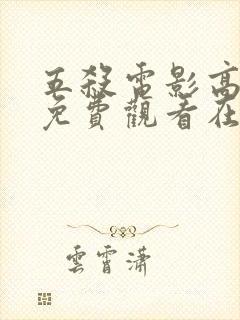 五殺電影高
免費觀看在
雲霄瀟